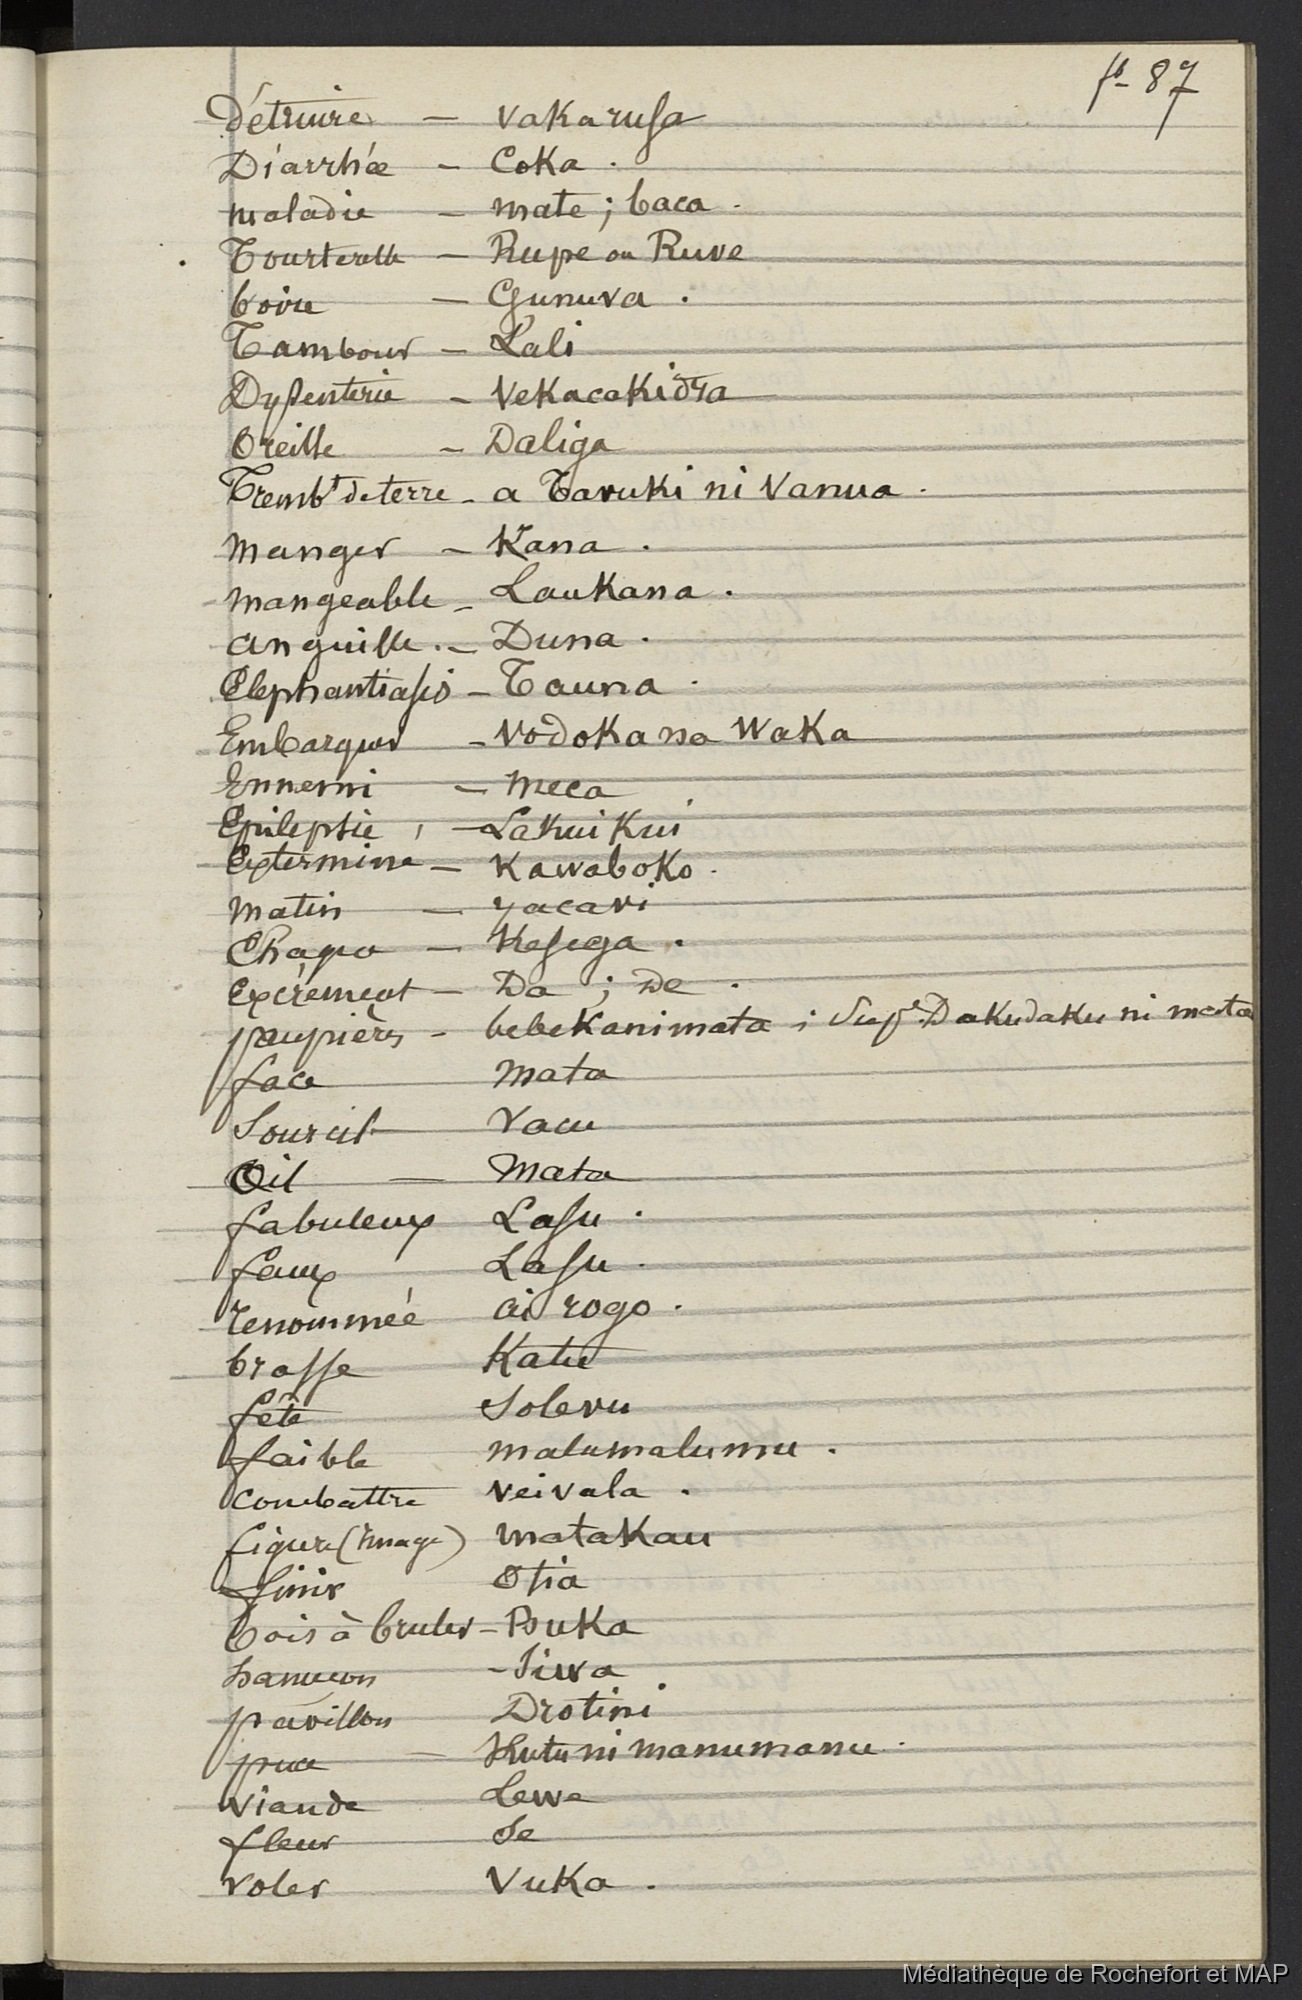 fo 87
Détruire — Vakarusa
Diarrhée — Coka .
maladie — mate ; baca .
Tourterelle — Rupe ou Ruve
boire — Gunuva .
Tambour — Lali
Dysenterie — Vekacakidra
Oreille — Daliga
Trembt de terre — a Tavuki ni Vanua .
Manger — Kana .
Mangeable — LauKana .
Anguille . — Duna .
Elephantiasis — Tauna .
Embarquer — Vodoka na Waka
Ennemi — Meca
Epilepsie — Sakuikui
Extermine — Kawaboko .
Matin — yacavi
— Kesega .
Excrément — Da ; De .
paupières — bebekanimata ; Supre Dakudaku ni mata
face Mata
Sourcil Vacu
Oil — Mata
fabuleux Lasu .
faux Lasu .
renommée ai rogo .
brasse Katu
fête Solevu
faible malumalumu .
Combattre Veivala .
figure (Image) Matakau
finir Otia
bois à bruler — Bouka
hameçon — Siwa
pavillon Drotini
puce — Kutu ni manumanu .
Viande Lewe
fleur Se
Voler Vuka .
Médiathèque de Rochefort et MAP